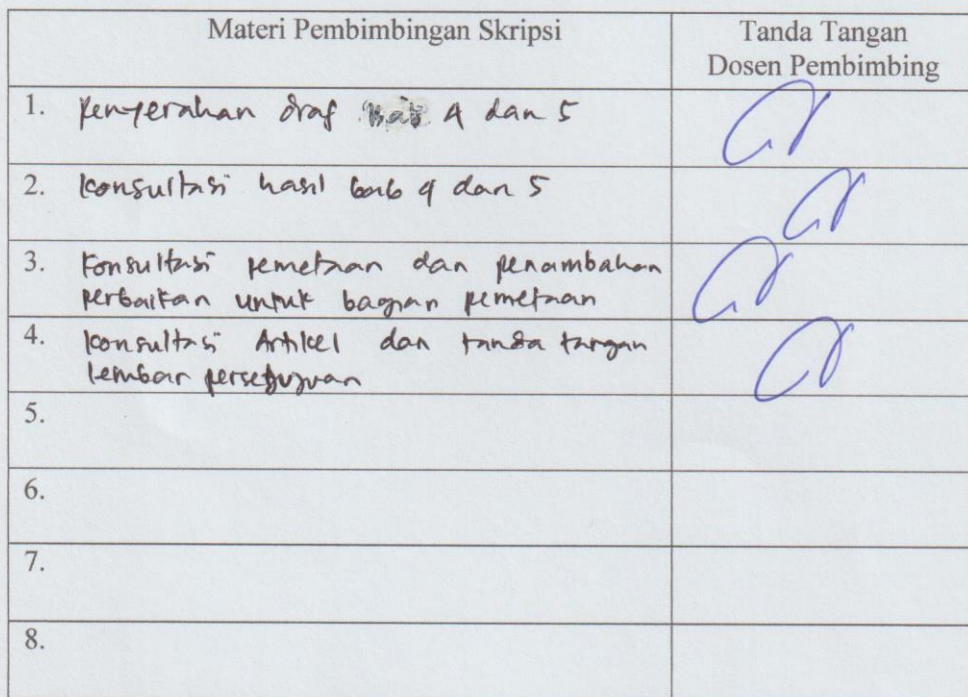 Materi Pembimbingan Skripsi
Tanda Tangan
Dosen Pembimbing
1. Penyerahan draf bab 4 dan 5
2. Konsultasi hasil bab 4 dan 5
3. Konsultasi pemetaan dan penambahan
perbaikan untuk bagian pemetaan
4. Konsultasi Artikel dan tanda tangan
lembar persetujuan
5.
6.
7.
8.